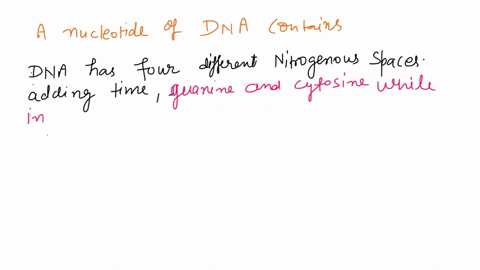 A nucleotide of DNA contains
DNA has four different Nitrogenous Spaces.
adding time, guanine and cytosine while
in